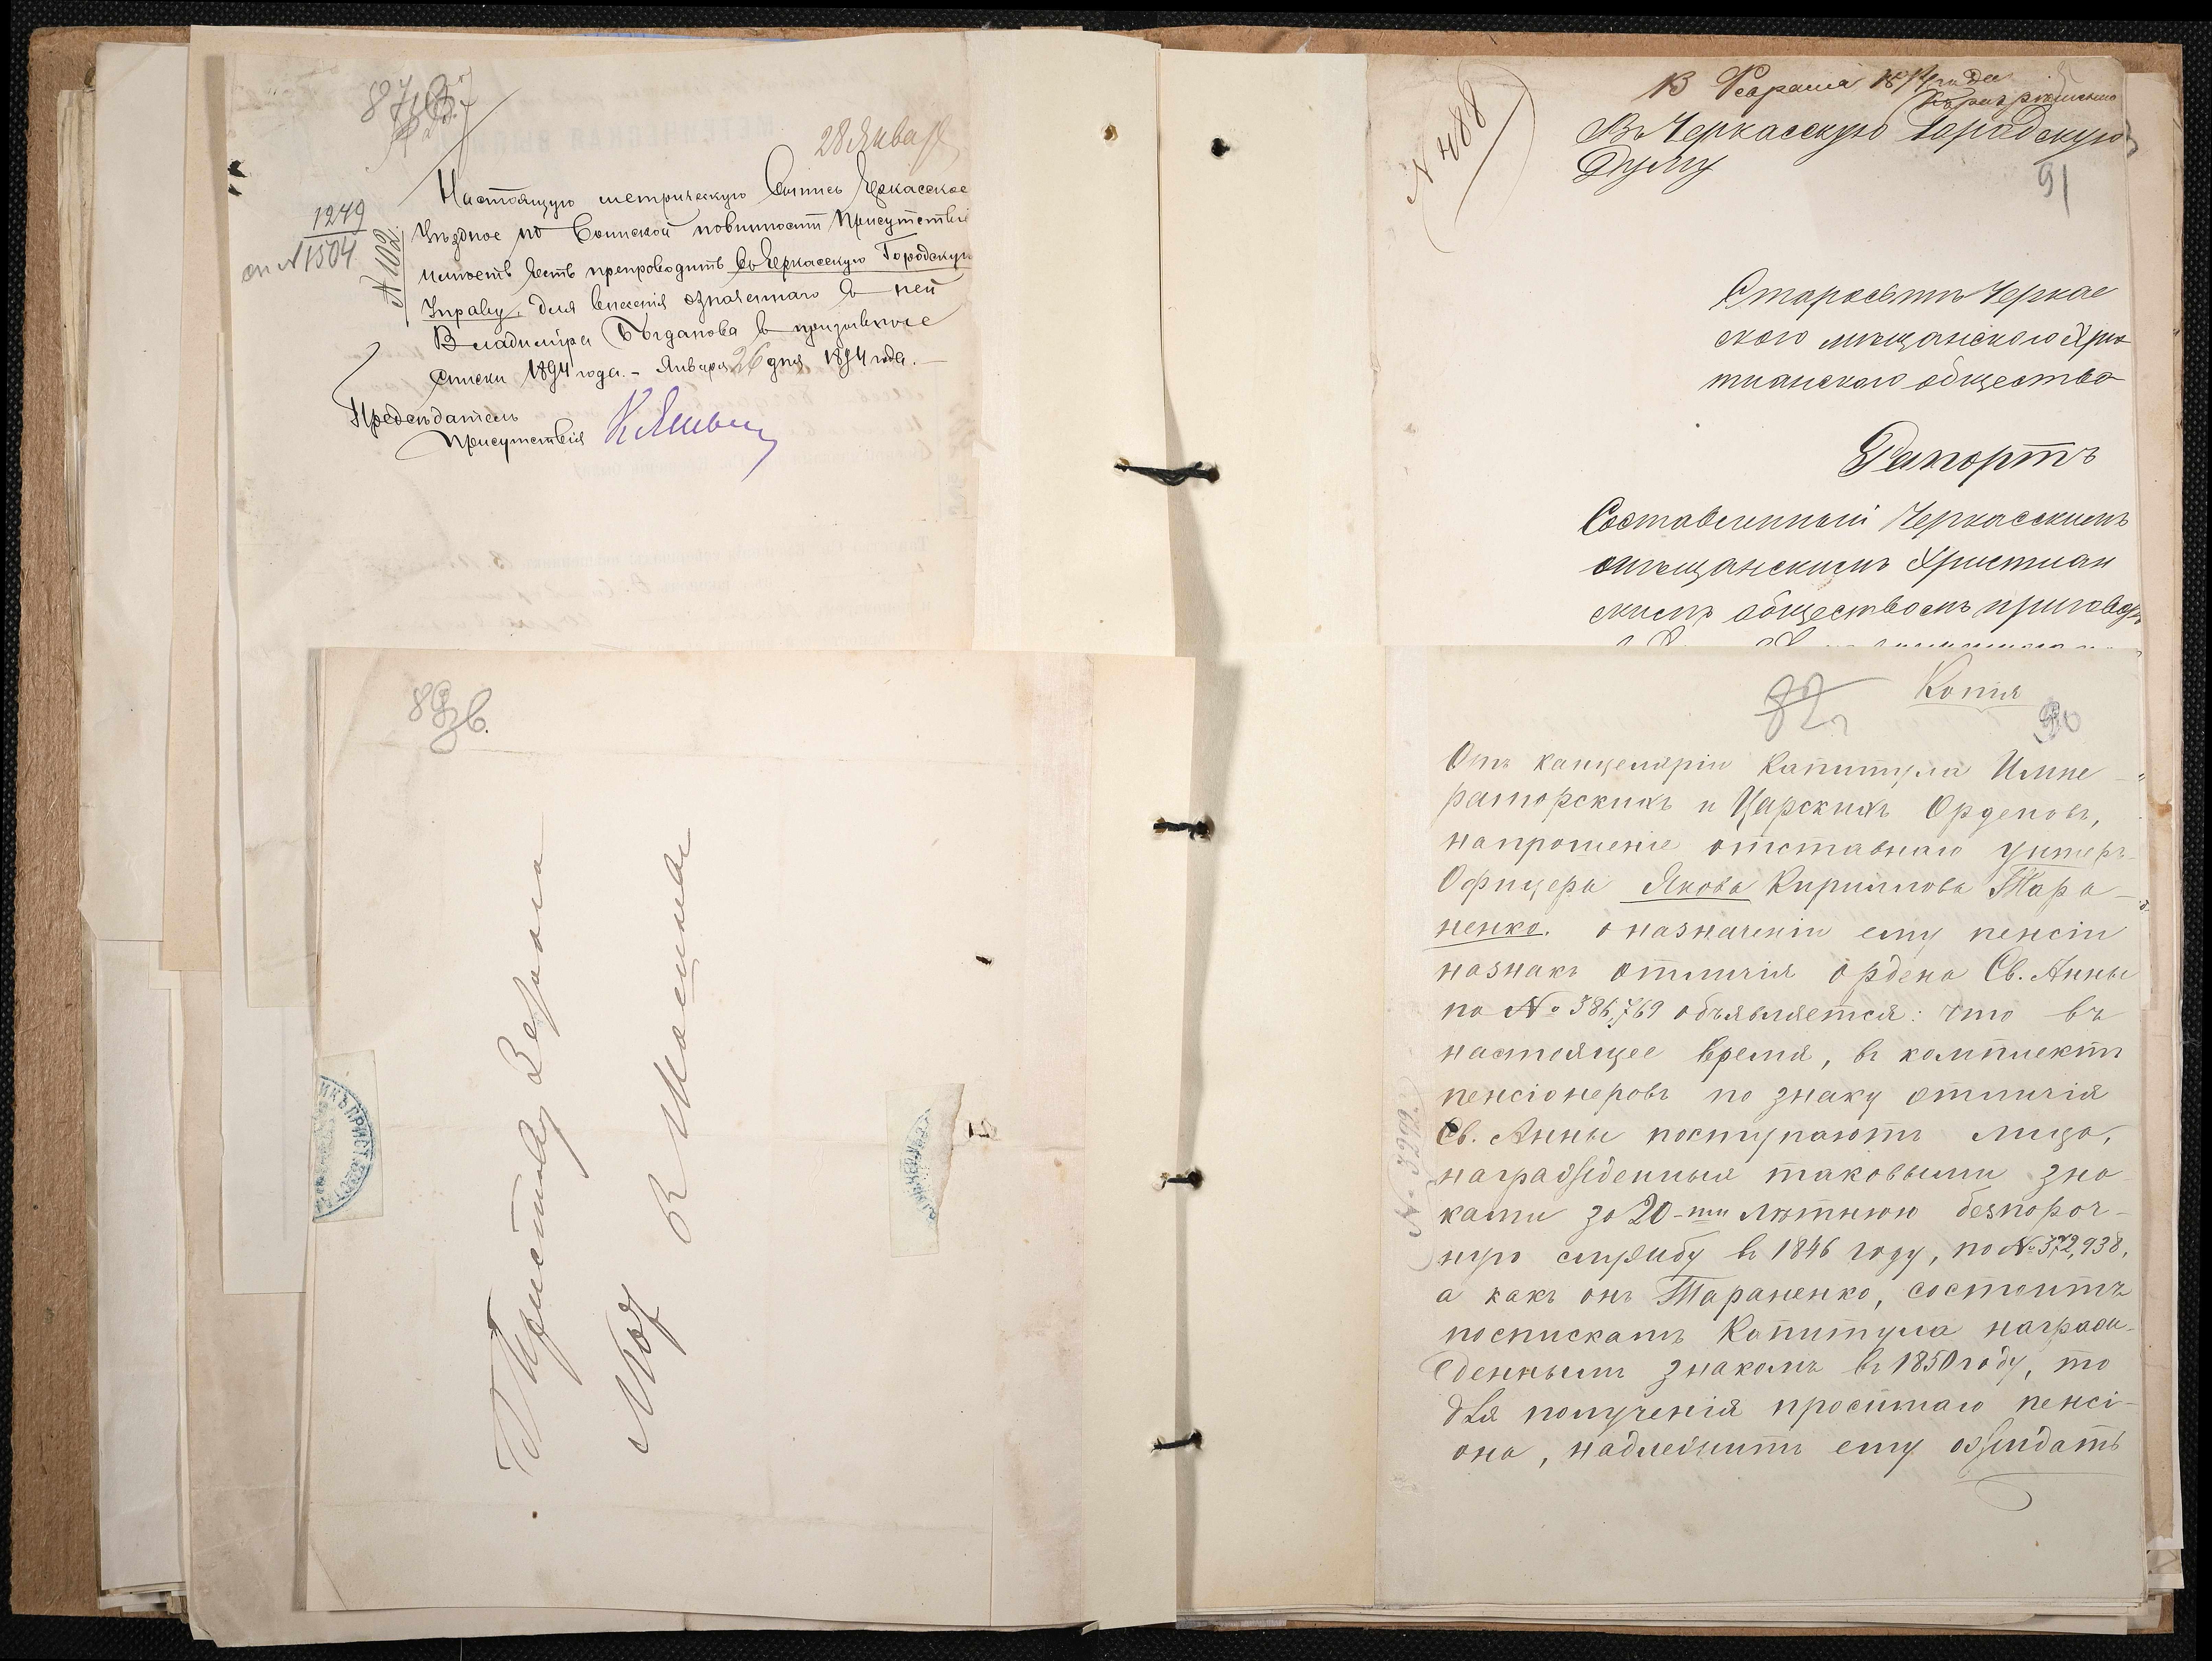 28 Января
Настоящую метрическую выпись Черкасское
Уѣздное по воинской повинности Присутствіе
имѣетъ честь препроводить въ Черкасскую Городскую
Управу, для внесенія означеннаго въ ней
Владиміра Богданова въ призывные
списки 1894 года. – Января 26 дня 1894 года. –
Предсѣдатель
Присутствія
1249
1504
№ 102.
Приставу
№ 488
13 Февраля
Въ Черкасскую Городскую
Думу
91
Старосты Черкас
скаго мѣщанскаго Хрис
тианскаго общества
Рапортъ
Составленный Черкасскимъ
мѣщанскимъ Христиан
скимъ обществомъ приговоръ
Копія
82
90
Отъ канцеляріи Капитула Импе-
раторскихъ и Царскихъ Орденовъ,
на прошеніе отставнаго унтеръ-
Офицера Якова Кириллова Тара-
ненко. о назначеніи ему пенсіи
на знакъ отличія ордена Св. Анны
по № 386,769 объявляется: что въ
настоящее время, въ комплектъ
пенсіонеровъ по знаку отличія
Св. Анны поступаютъ лица,
награжденныя таковыми зна-
ками за 20-ти лѣтнюю безпороч-
ную службу въ 1846 году, по № 372,938,
а какъ онъ Тараненко, состоитъ
по спискамъ Капитула награж-
деннымъ знакомъ въ 1850 году, то
для полученія просимаго пенсі-
она, надлежитъ ему ожидать